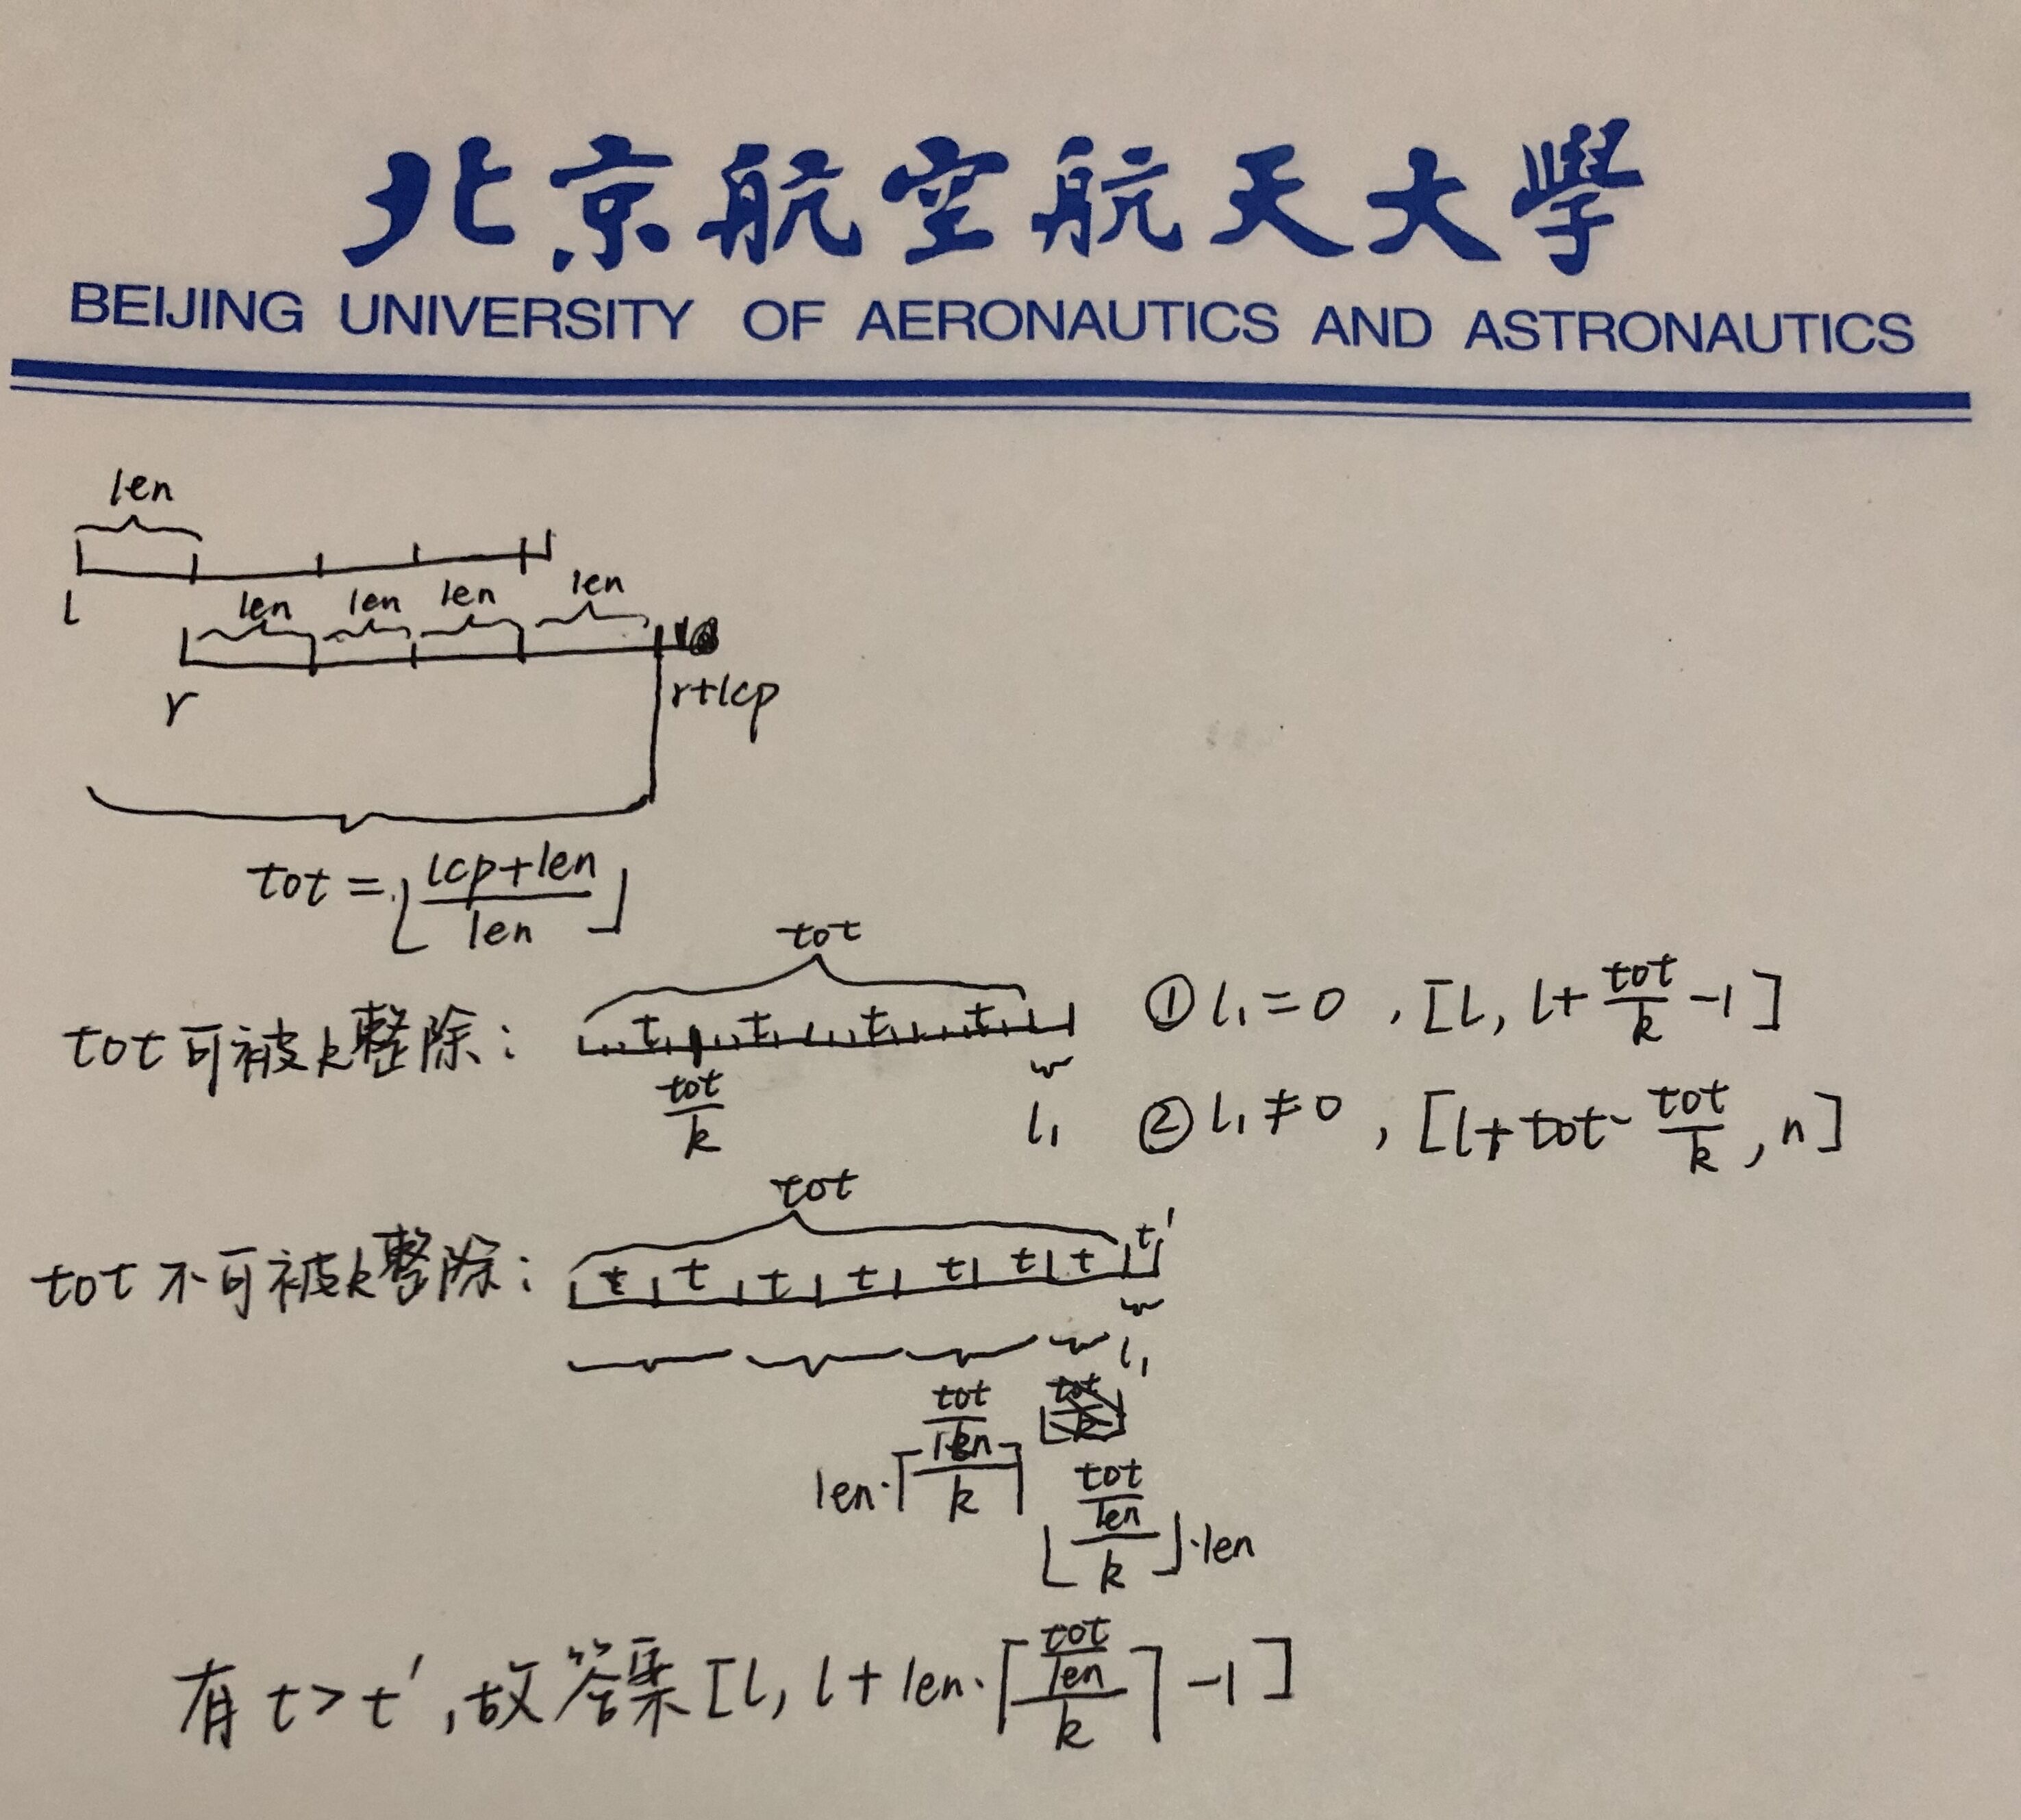 北京航空航天大學
BEIJING UNIVERSITY OF AERONAUTICS AND ASTRONAUTICS
len
l
len len len len
r r+lcp
tot = ⌊(lcp+len)/len⌋
tot
tot可被k整除: t t t t ① l₁=0 , [l, l+tot/k-1]
tot/k l₁ ② l₁≠0 , [l+tot-tot/k, n]
tot
tot不可被k整除: t t t t t t t t'
l₁
len·⌈(tot/len)/k⌉ ⌊(tot/len)/k⌋·len
有t>t',故答案[l, l+len·⌈(tot/len)/k⌉-1]